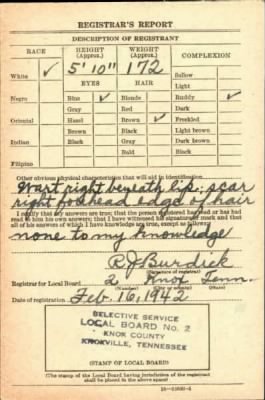 REGISTRAR'S REPORT
DESCRIPTION OF REGISTRANT
RACE HEIGHT (Approx.) WEIGHT (Approx.) COMPLEXION
White ✓ 5' 10" 172 Sallow
EYES HAIR Light
Negro Blue ✓ Blonde Ruddy ✓
Gray Red Dark
Oriental Hazel Brown ✓ Freckled
Brown Black Light brown
Indian Black Gray Dark brown
Bald Black
Filipino
Other obvious physical characteristics that will aid in identification
Wart right beneath lip; scar
right forehead edge of hair
I certify that my answers are true; that the person registered has read or has had
read to him his own answers; that I have witnessed his signature or mark and that
all of his answers of which I have knowledge are true, except as follows:
none to my knowledge
R J Burdick
(Signature of registrar)
Registrar for Local Board 2 Knox Tenn
(Number) (City or county) (State)
Date of registration Feb 16, 1942
SELECTIVE SERVICE
LOCAL BOARD No. 2
KNOX COUNTY
KNOXVILLE, TENNESSEE
(STAMP OF LOCAL BOARD)
(The stamp of the Local Board having jurisdiction of the registrant
shall be placed in the above space.)